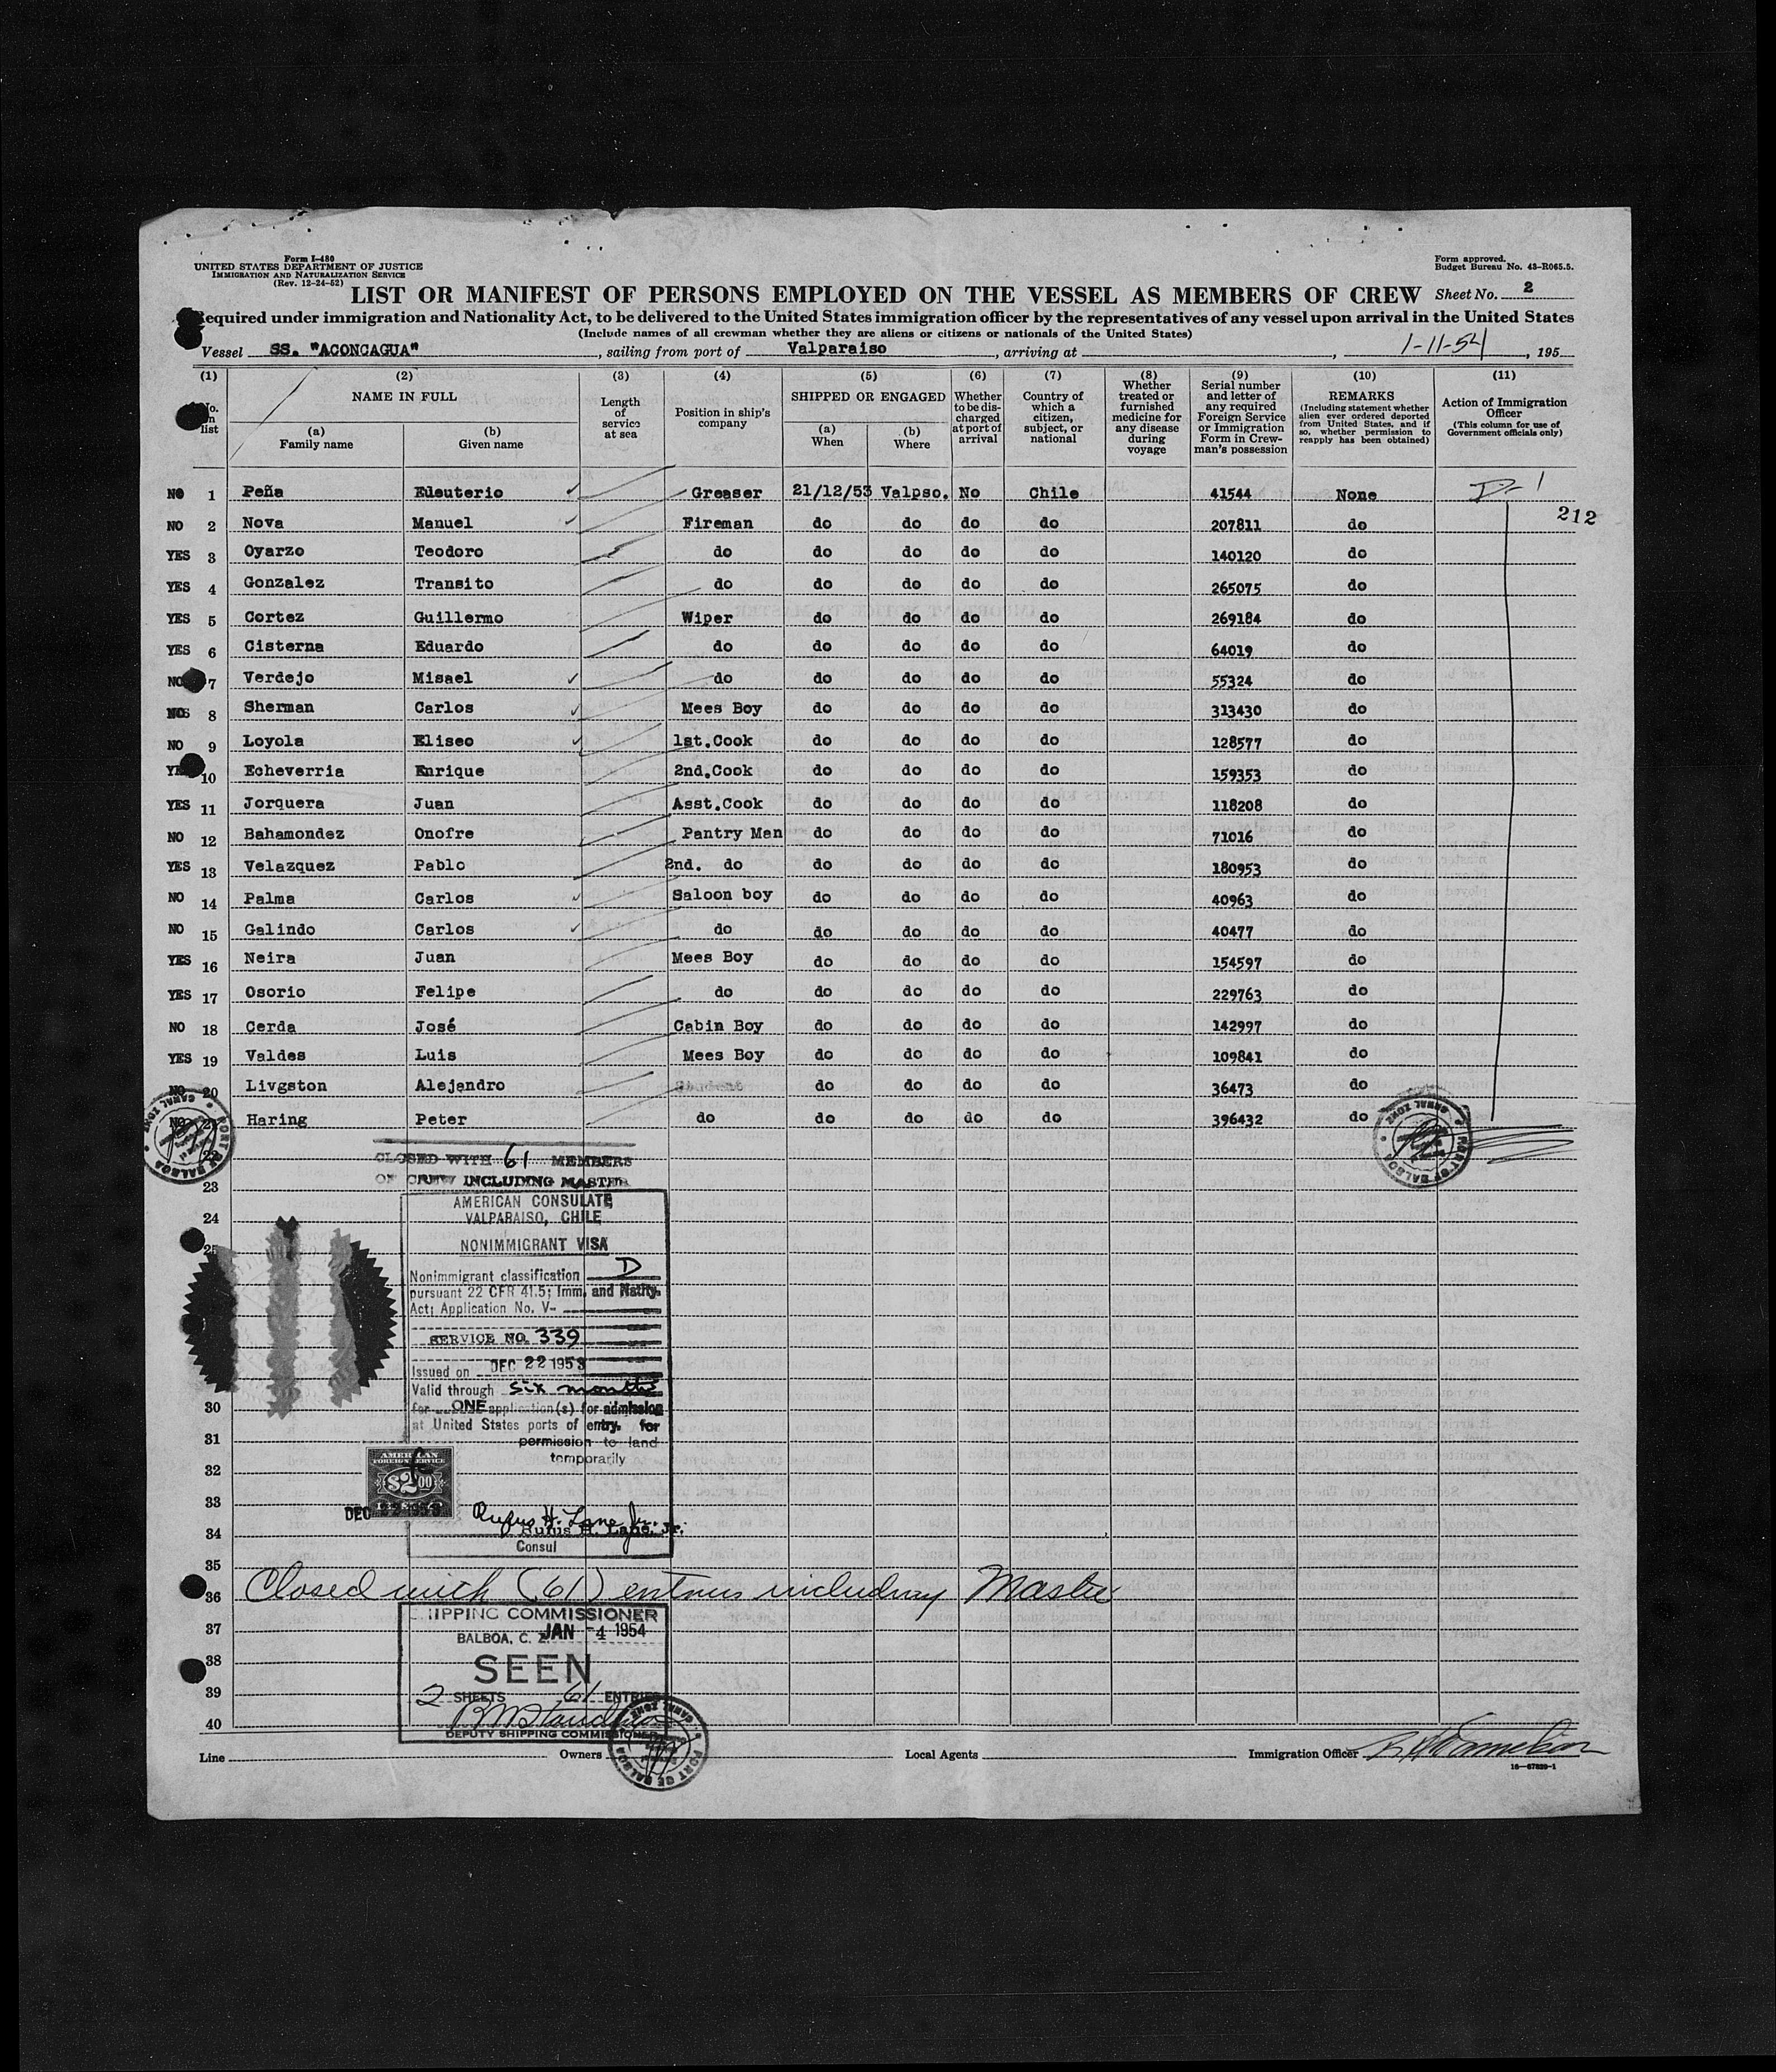 Form I-480
UNITED STATES DEPARTMENT OF JUSTICE
IMMIGRATION AND NATURALIZATION SERVICE
(Rev. 12-24-52)
Form approved.
Budget Bureau No. 43-R065.5.
LIST OR MANIFEST OF PERSONS EMPLOYED ON THE VESSEL AS MEMBERS OF CREW Sheet No. 2
Required under immigration and Nationality Act, to be delivered to the United States immigration officer by the representatives of any vessel upon arrival in the United States
(Include names of all crewman whether they are aliens or citizens or nationals of the United States)
Vessel SS. "ACONCAGUA", sailing from port of Valparaiso, arriving at , 1-11-54, 195
(1) (2) (3) (4) (5) (6) (7) (8) (9) (10) (11)
No. in list
NAME IN FULL
(a) Family name
(b) Given name
Length of service at sea
Position in ship's company
SHIPPED OR ENGAGED
(a) When
(b) Where
Whether to be discharged at port of arrival
Country of which a citizen, subject, or national
Whether treated or furnished medicine for any disease during voyage
Serial number and letter of any required Foreign Service or Immigration Form in Crewman's possession
REMARKS
(Including statement whether alien ever ordered deported from United States, and if so, whether permission to reapply has been obtained)
Action of Immigration Officer
(This column for use of Government officials only)
NO 1 Peña Eleuterio Greaser 21/12/53 Valpso. No Chile 41544 None D-1
212
NO 2 Nova Manuel Fireman do do do do 207811 do
YES 3 Oyarzo Teodoro do do do do do 140120 do
YES 4 Gonzalez Transito do do do do do 265075 do
YES 5 Cortez Guillermo Wiper do do do do 269184 do
YES 6 Cisterna Eduardo do do do do do 64019 do
NO 7 Verdejo Misael do do do do do 55324 do
8 Sherman Carlos Mees Boy do do do do 313430 do
NO 9 Loyola Eliseo 1st.Cook do do do do 128577 do
10 Echeverria Enrique 2nd.Cook do do do do 159353 do
YES 11 Jorquera Juan Asst.Cook do do do do 118208 do
NO 12 Bahamondez Onofre Pantry Man do do do do 71016 do
YES 13 Velazquez Pablo 2nd. do do do do do 180953 do
NO 14 Palma Carlos Saloon boy do do do do 40963 do
NO 15 Galindo Carlos do do do do do 40477 do
YES 16 Neira Juan Mees Boy do do do do 154597 do
YES 17 Osorio Felipe do do do do do 229763 do
NO 18 Cerda José Cabin Boy do do do do 142997 do
YES 19 Valdes Luis Mees Boy do do do do 109841 do
NO 20 Livgston Alejandro do do do do 36473 do
NO 21 Haring Peter do do do do do 396432 do
PORT OF BALBOA CANAL ZONE
PORT OF BALBOA CANAL ZONE
22
CLOSED WITH 61 MEMBERS
OF CREW INCLUDING MASTER
23
AMERICAN CONSULATE
24
VALPARAISO, CHILE
25
NONIMMIGRANT VISA
Nonimmigrant classification D
pursuant 22 CFR 41.5; Imm. and Natlty.
Act; Application No. V-
SERVICE NO. 339
Issued on DEC 22 1953
Valid through six months
30
for ONE application(s) for admission
at United States ports of entry. for
31
permission to land
temporarily
32
AMERICAN
FOREIGN SERVICE
$2.00
33
DEC 22 1953
Rufus H. Lane Jr.
Rufus H. Lane, Jr.
34
Consul
35
36 Closed with (61) entries including Master
SHIPPING COMMISSIONER
37
BALBOA, C. Z. JAN -4 1954
38
SEEN
39
2 SHEETS 61 ENTRIES
40
DEPUTY SHIPPING COMMISSIONER
PORT OF BALBOA CANAL ZONE
Line Owners Local Agents Immigration Officer
16-67829-1